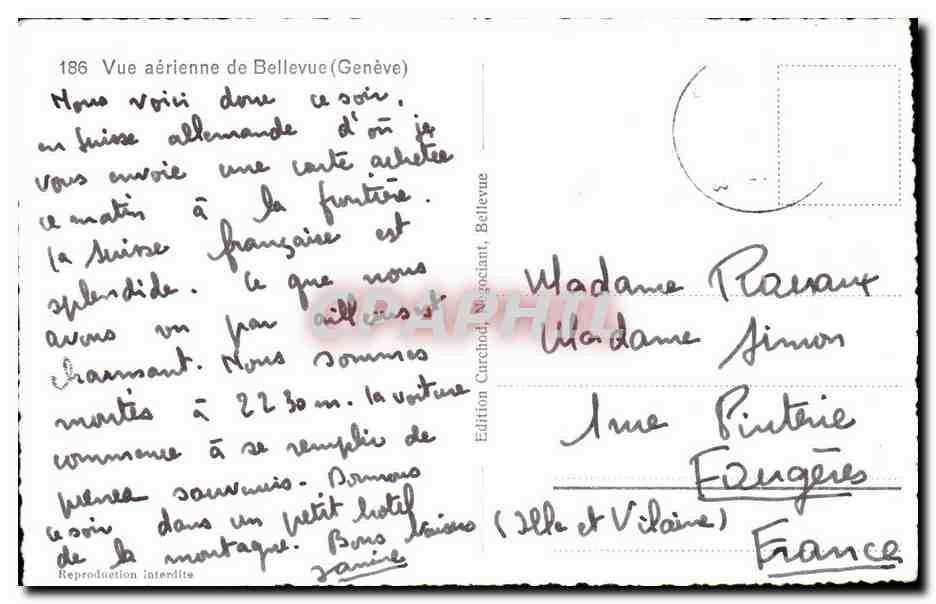 186 Vue aérienne de Bellevue (Genève)
Nous voici donc ce soir,
en Suisse allemande d'où je
vous envoie une carte achetée
ce matin à la frontière.
la Suisse française est
splendide. Ce que nous
avons vu par ailleurs est
charmant. Nous sommes
montés à 2230 m. la voiture
commence à se remplir de
pierres souvenirs. Dormons
ce soir dans un petit hotel
de la montagne. Bons baisers
Reproduction interdite
Edition Curchod, Négociant, Bellevue
CPAPHIL
Madame Ravaux
Madame Simon
1 rue Pinterie
Fougères
(Ille et Vilaine)
France